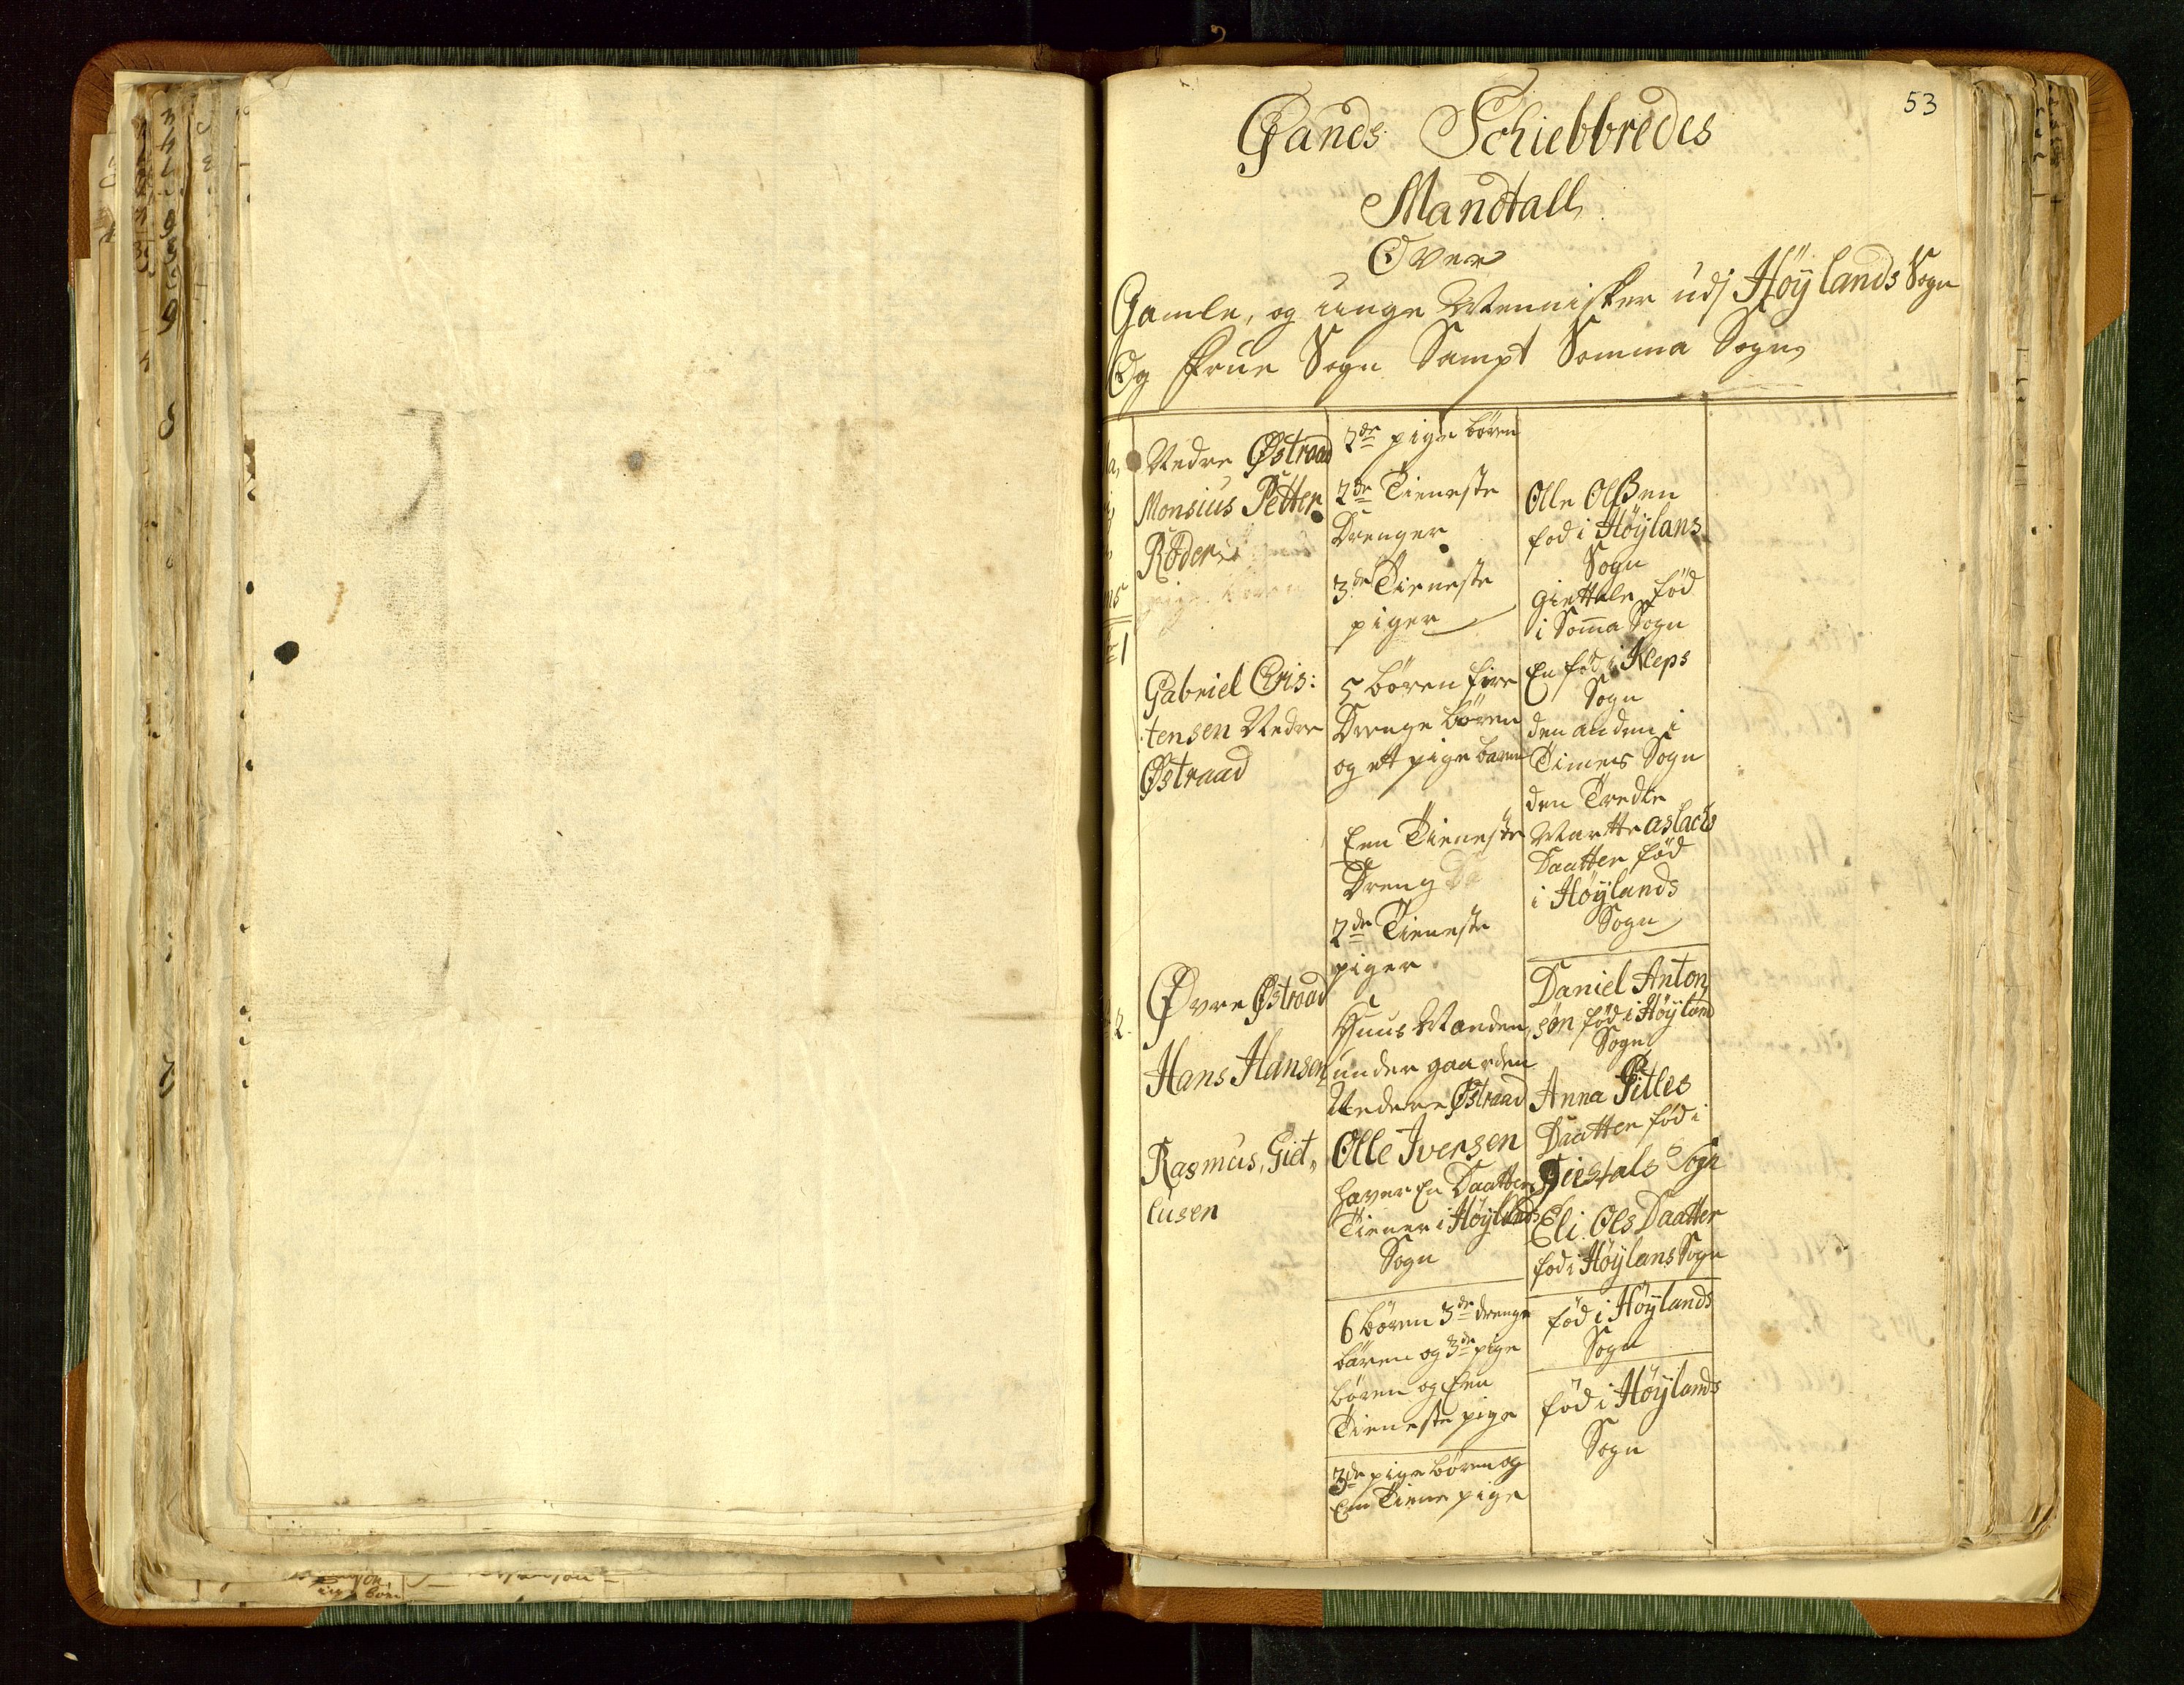 53
Gands Schiebbredes
Mandtall
Over
Gamle, og unge Mennisker udj Höÿlands Sogn
Og frue Sogn Sampt Somma Sogn
Nedre Østraad
Monsius Petter
Röder
Gabriel Cris:
tensen Nedre
Østraad
Øvre Østraad
Hans Hansen
Rasmus, Giet„
lusen
2de pige bören
2de Tieneste
Drenger
3de Tieneste
piger
5 bören fire
Drenge bören
og ett pige baren
Een Tieneste
Dreng
2de Tieneste
piger
Huus Manden
under gaarden
Nedere Østraad
Olle Iversen
haver En Daatter
Tiener i Höylands
Sogn
6 bören 3de drenge
bären og 3de pige
bören og Een
Tieneste pige
3de pige bören og
Een Tiene pige
Olle Olßen
fod i Höÿlans
Sogn
Giettele föd
i Soma Sogn
En föd i Kleps
Sogn
den anden i
Timers Sogn
den Tredie
Martte Aslacs
Daatter föd
i Höÿlands
Sogn
Daniel Anton
søn föd i Höÿland
Sogn
Anna Pitles
Daatter föd i
Giestals Sogn
Eli Ols Daatter
fod i Höÿlans Sogn
föd i Höÿlands
Sogn
föd i Höÿlands
Sogn